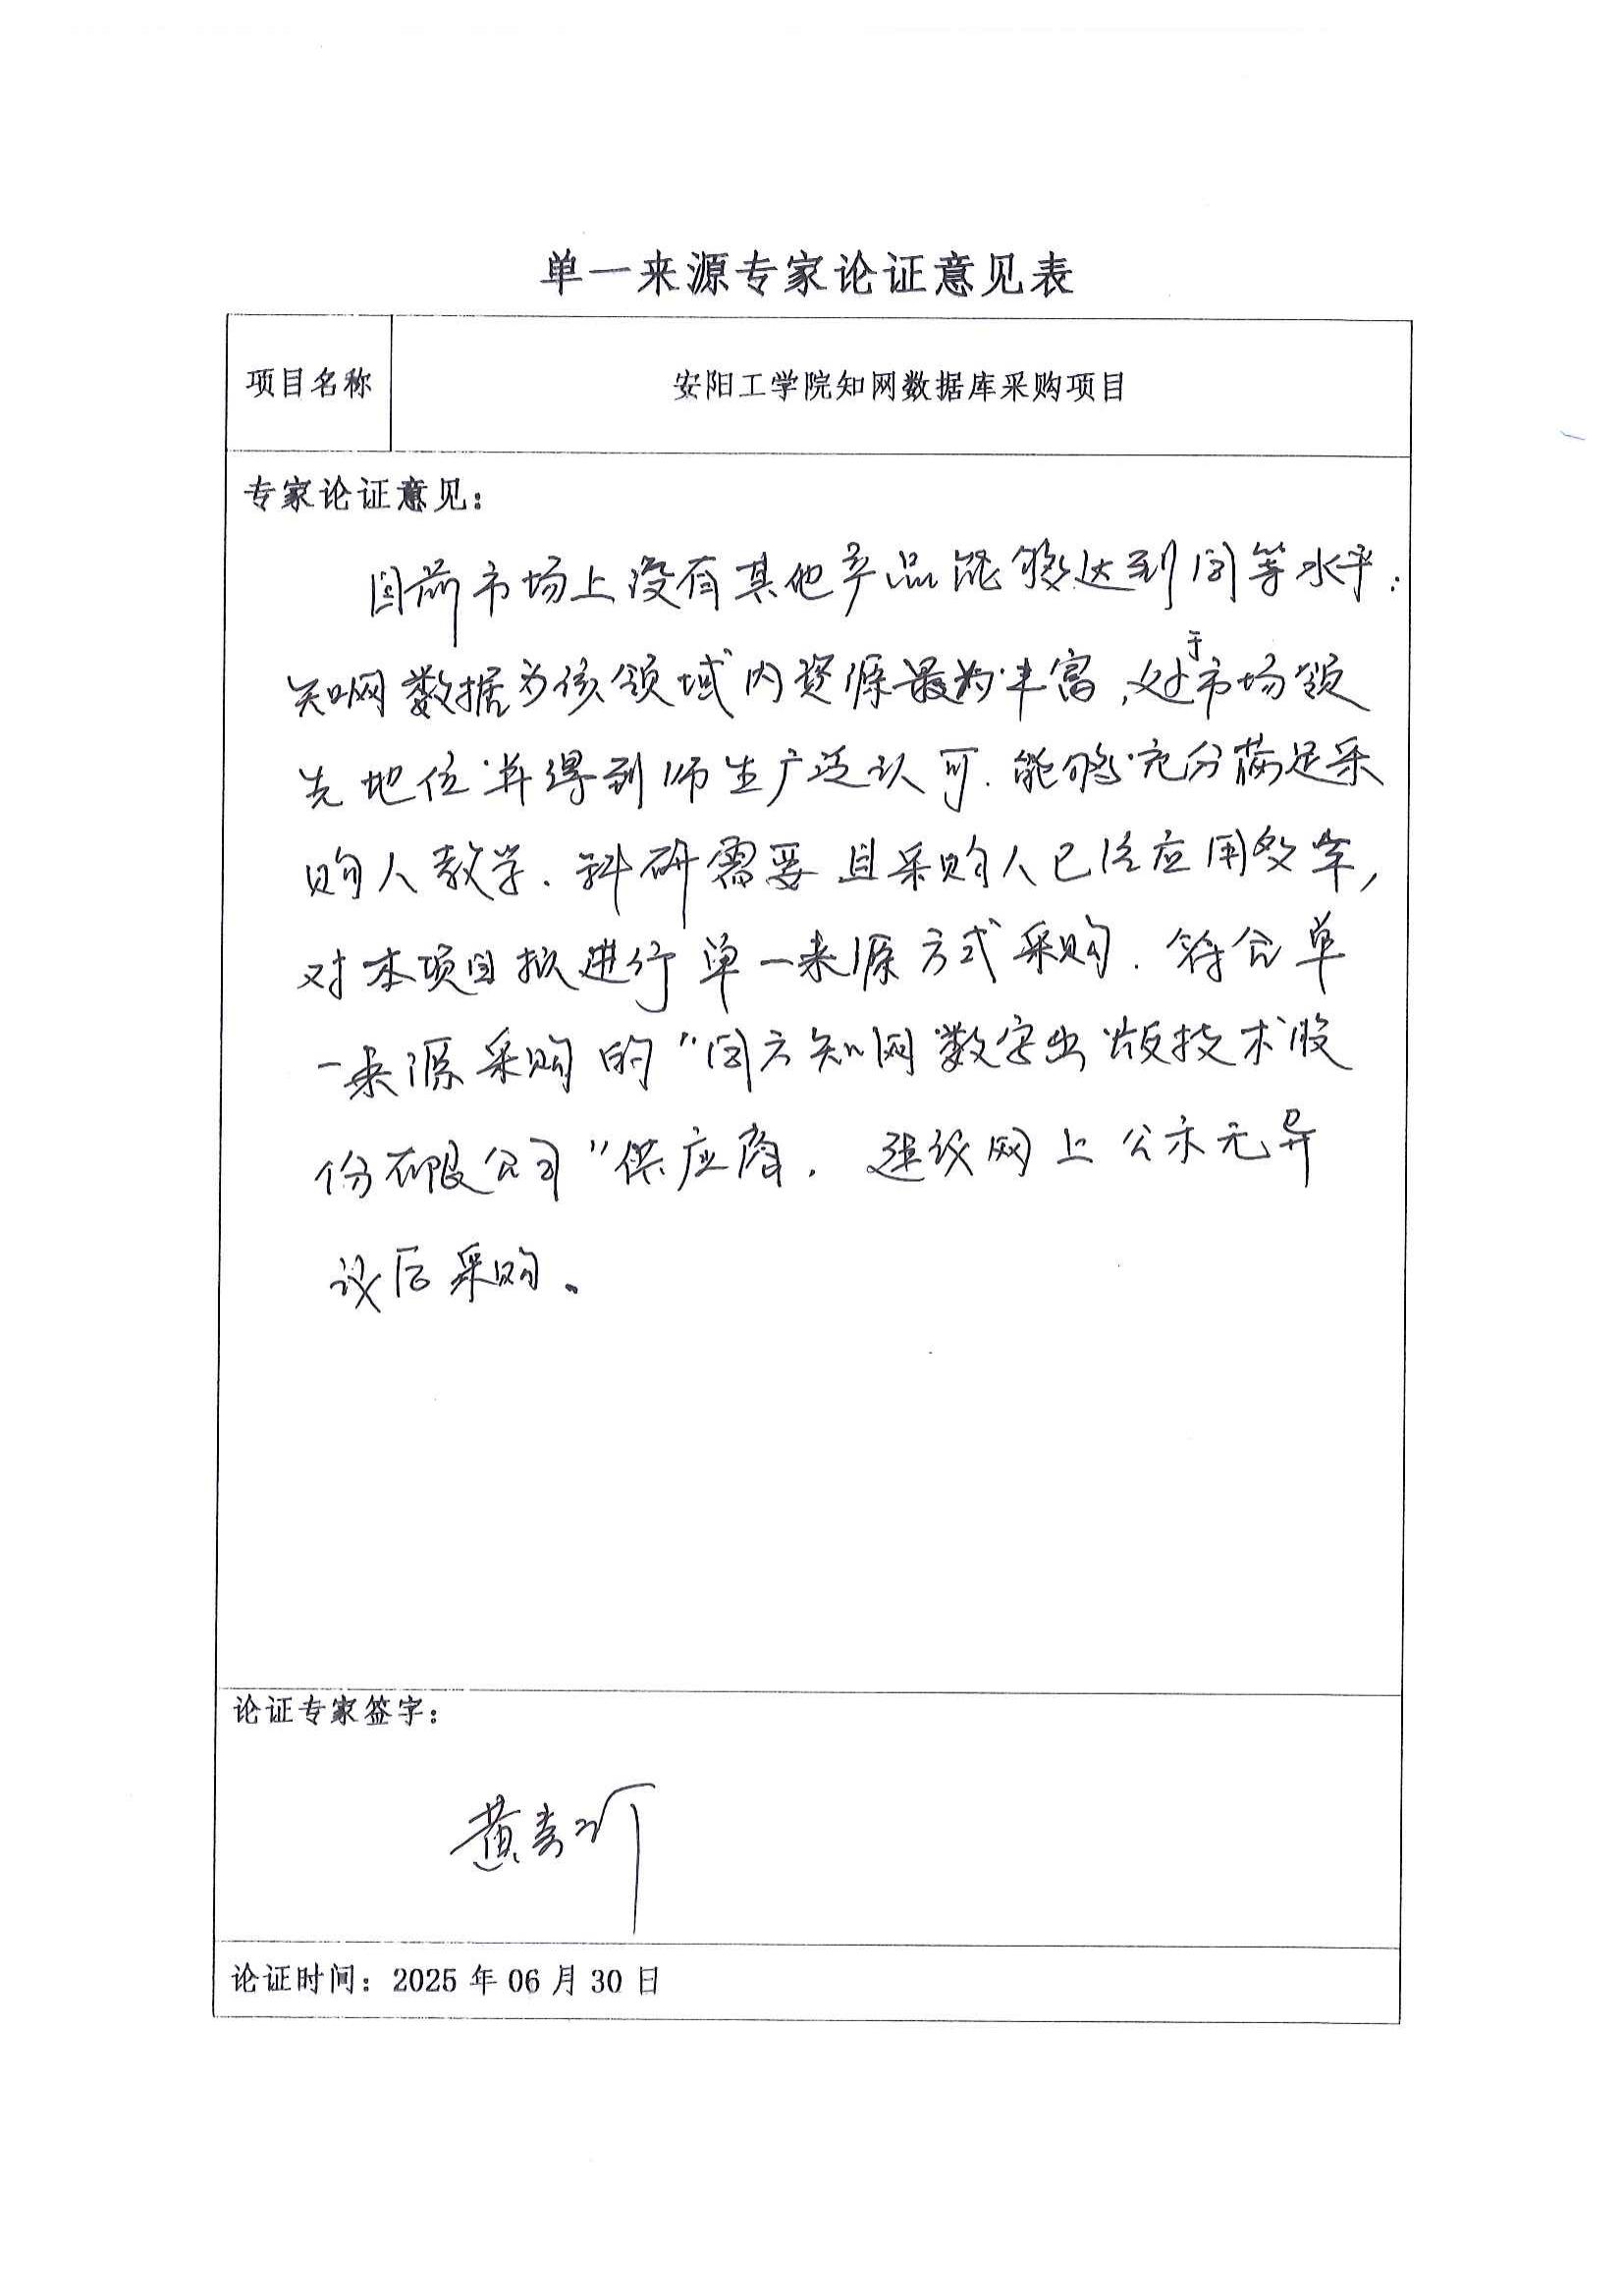 单一来源专家论证意见表
项目名称
安阳工学院知网数据库采购项目
专家论证意见：
目前市场上没有其他产品能够达到同等水平：
知网数据为该领域内资源最为丰富，处于市场领
先地位并得到师生广泛认可．能够充分满足采
购人教学、科研需要且采购人已经应用多年，
对本项目拟进行单一来源方式采购．符合单
一来源采购的"同方知网数字出版技术股
份有限公司"供应商．建议网上公示无异
议后采购。
论证专家签字：
黄
论证时间：2025年06月30日